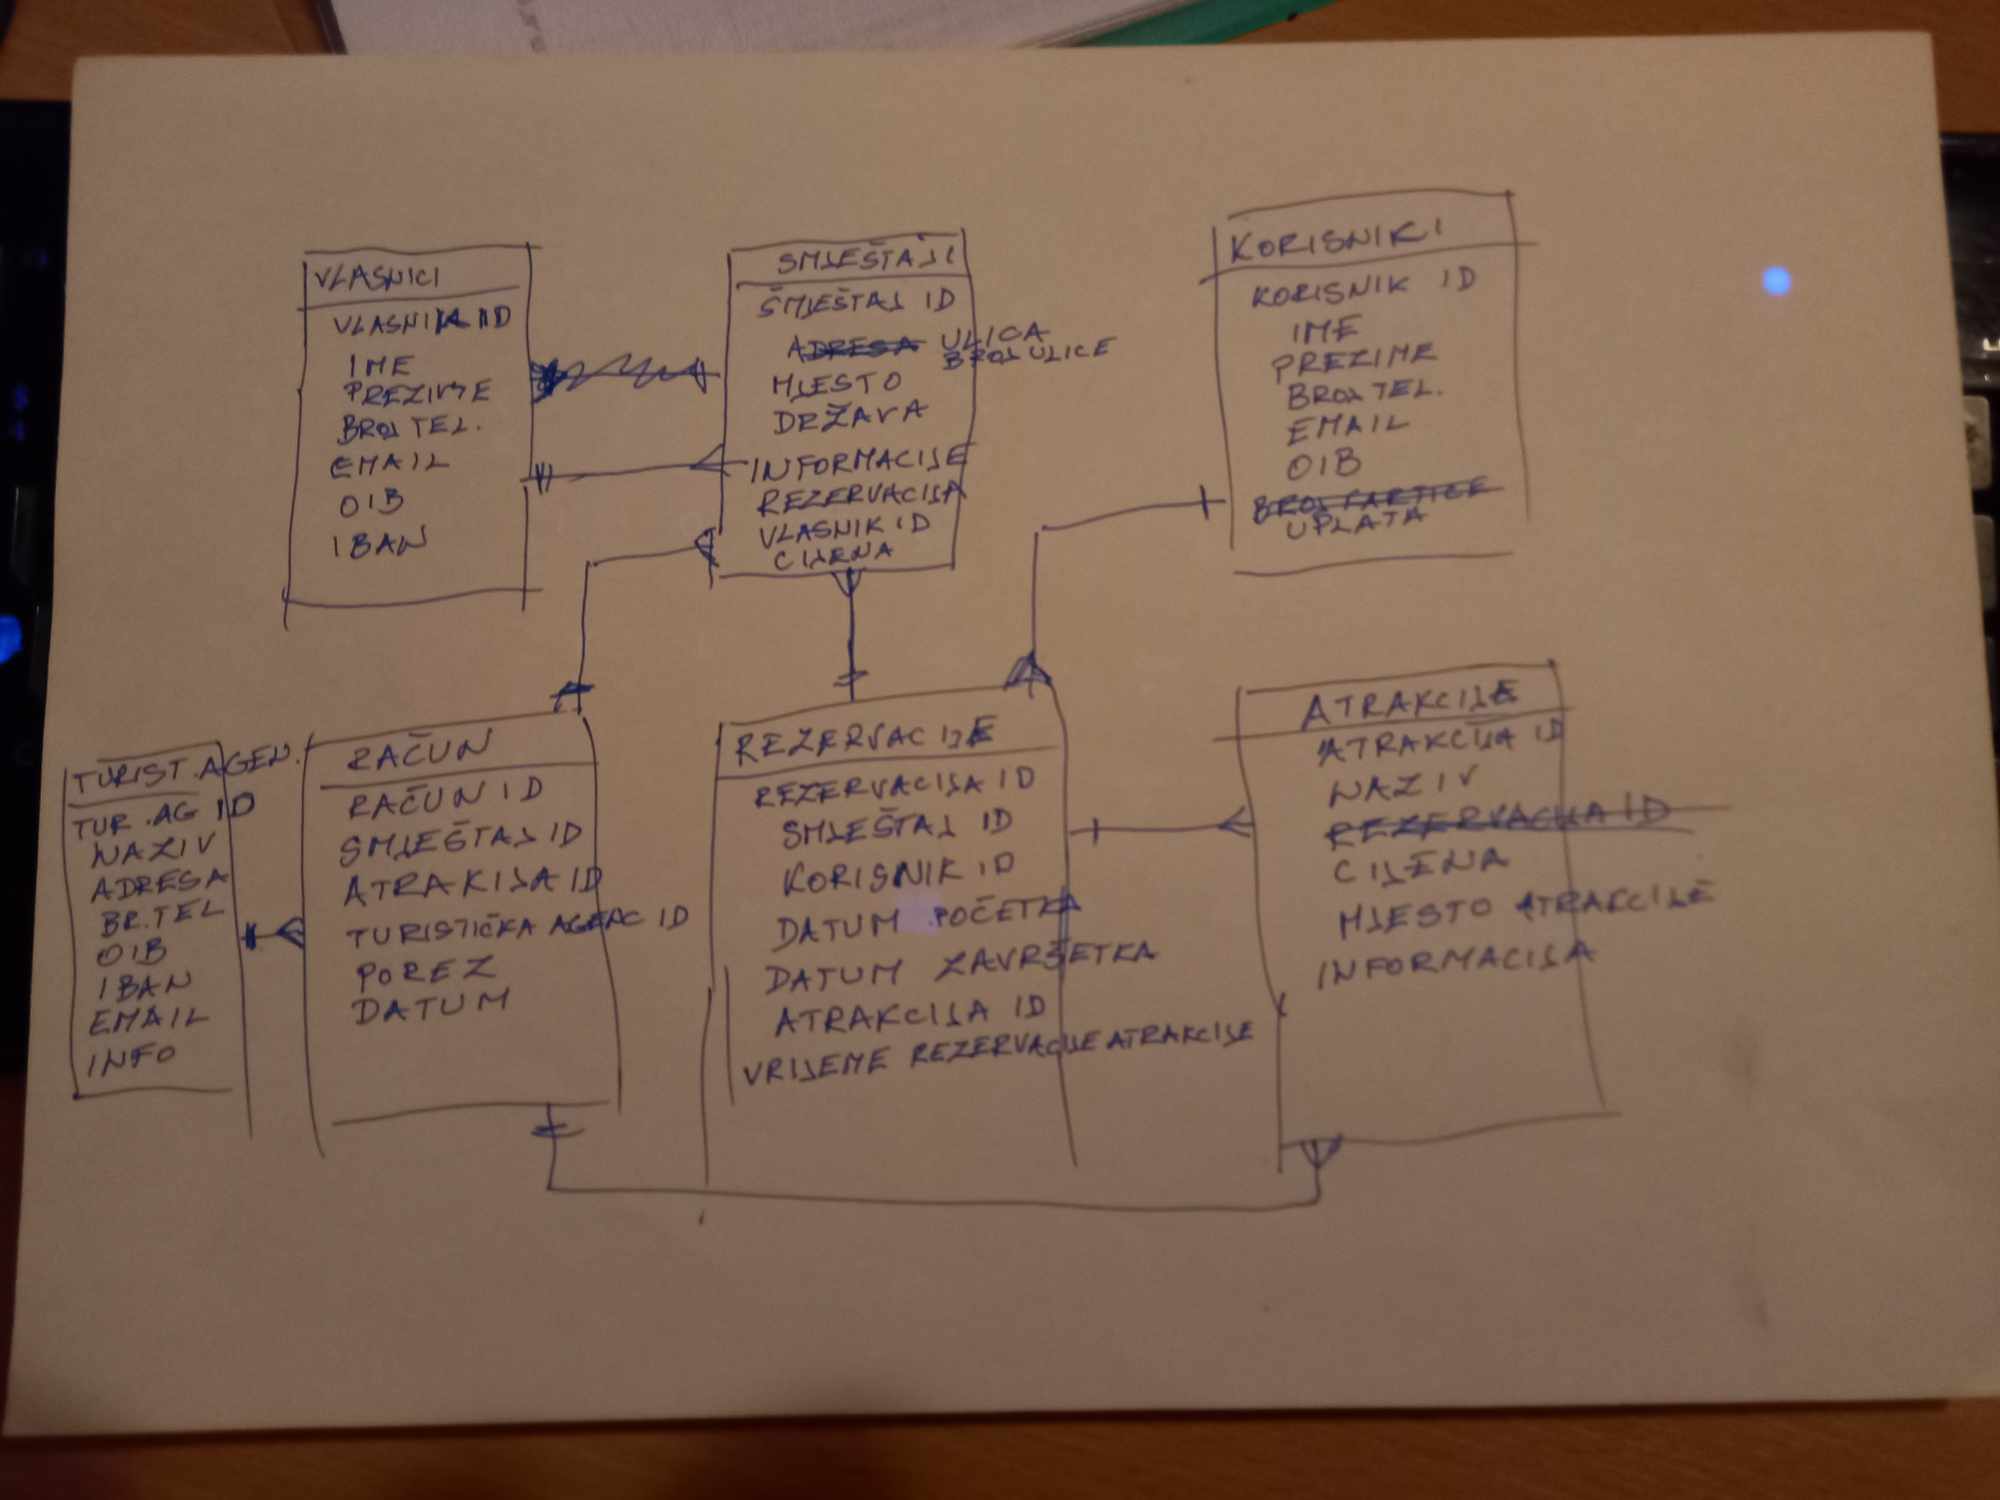 VLASNICI
VLASNIK ID
IME
PREZIME
BROJ TEL.
EMAIL
OIB
IBAN
SMJEŠTAJI
SMJEŠTAJ ID
ADRESA ULICA
BROJ ULICE
MJESTO
DRŽAVA
INFORMACIJE
REZERVACIJA
VLASNIK ID
CIJENA
KORISNIKI
KORISNIK ID
IME
PREZIME
BROJ TEL.
EMAIL
OIB
BROJ KARTICE
UPLATA
TURIST. AGEN.
TUR. AG ID
NAZIV
ADRESA
BR. TEL
OIB
IBAN
EMAIL
INFO
RAČUN
RAČUN ID
SMJEŠTAJ ID
ATRAKIJA ID
TURISTIČKA AGENC ID
POREZ
DATUM
REZERVACIJE
REZERVACIJA ID
SMJEŠTAJ ID
KORISNIK ID
DATUM POČETKA
DATUM ZAVRŠETKA
ATRAKCIJA ID
VRIJEME REZERVACIJE ATRAKCIJE
ATRAKCIJE
ATRAKCIJA ID
NAZIV
REZERVACIJA ID
CIJENA
MJESTO ATRAKCIJE
INFORMACIJA